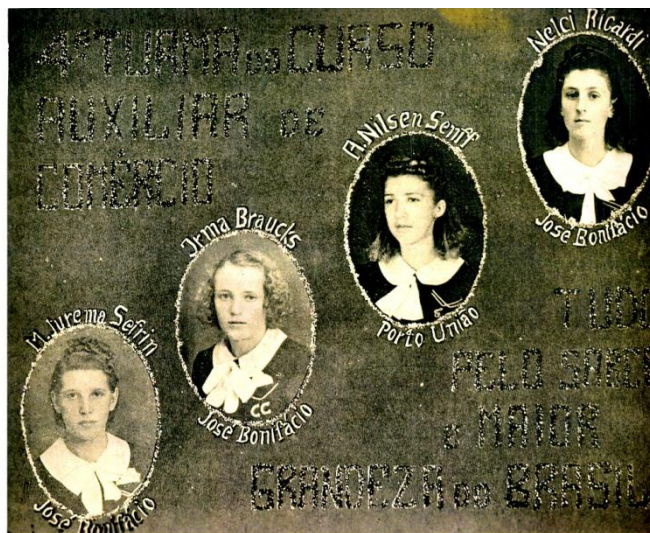 4ª TURMA DO CURSO
AUXILIAR DE
COMÉRCIO
Nelci Ricardi
José Bonifácio
A. Nilsen Senff
Porto União
Irma Braucks
CC
José Bonifácio
M. Jurema Sefrin
José Bonifácio
TUDO
PELO SABER
E MAIOR
GRANDEZA DO BRASIL